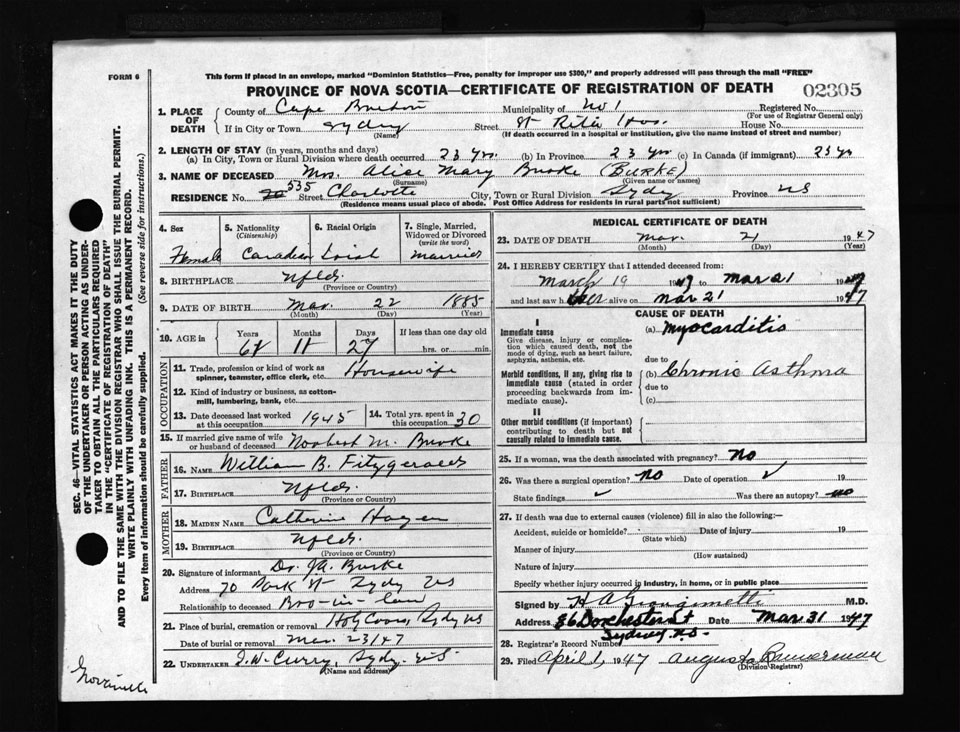 FORM 6
This form if placed in an envelope, marked "Dominion Statistics—Free, penalty for improper use $300," and properly addressed will pass through the mail "FREE"
PROVINCE OF NOVA SCOTIA—CERTIFICATE OF REGISTRATION OF DEATH 02305
1. PLACE OF DEATH County of Cape Breton Municipality of No 1 Registered No.
(For use of Registrar General only)
If in City or Town Sydney Street St Rita Hos. House No.
(Name) (If death occurred in a hospital or institution, give the name instead of street and number)
2. LENGTH OF STAY (in years, months and days)
(a) In City, Town or Rural Division where death occurred 23 yrs. (b) In Province 23 yrs (c) In Canada (if immigrant) 23 yrs
3. NAME OF DECEASED Mrs. Alice Mary Burke (BURKE)
(Surname) (Given name or names)
RESIDENCE No. 535 Street Charlotte City, Town or Rural Division Sydy Province NS
(Residence means usual place of abode. Post Office Address for residents in rural parts not sufficient)
4. Sex 5. Nationality (Citizenship) 6. Racial Origin 7. Single, Married, Widowed or Divorced (write the word)
Female Canadian Irish Married
8. BIRTHPLACE Nfld.
(Province or Country)
9. DATE OF BIRTH Mar. 22 1885
(Month) (Day) (Year)
10. AGE in Years Months Days If less than one day old
11 27 hrs. or min.
11. Trade, profession or kind of work as spinner, teamster, office clerk, etc. Housewife
12. Kind of industry or business, as cotton-mill, lumbering, bank, etc.
13. Date deceased last worked at this occupation 1945 14. Total yrs. spent in this occupation 30
OCCUPATION
15. If married give name of wife or husband of deceased Norbert M. Burke
FATHER
16. NAME William B. Fitzgerald
17. BIRTHPLACE Nfld.
(Province or Country)
MOTHER
18. MAIDEN NAME Catherine Hogan
19. BIRTHPLACE Nfld.
(Province or Country)
20. Signature of informant Dr. J.A. Burke
Address 70 Park St Sydy NS
Relationship to deceased Bro-in-law
21. Place of burial, cremation or removal Holy Cross, Sydy NS
Date of burial or removal Mar. 23/47
22. UNDERTAKER J.W. Curry, Sydy. N.S.
(Name and address)
MEDICAL CERTIFICATE OF DEATH
23. DATE OF DEATH Mar. 21 1947
(Month) (Day) (Year)
24. I HEREBY CERTIFY that I attended deceased from:
March 19 1947 to Mar 21 1947
and last saw her alive on Mar 21 1947
CAUSE OF DEATH
I
Immediate cause (a) Myocarditis
Give disease, injury or complication which caused death, not the mode of dying, such as heart failure, asphyxia, asthenia, etc.
due to
Morbid conditions, if any, giving rise to immediate cause (stated in order proceeding backwards from immediate cause). (b) Chronic Asthma
due to
(c)
II
Other morbid conditions (if important) contributing to death but not causally related to immediate cause.
25. If a woman, was the death associated with pregnancy? No
26. Was there a surgical operation? No Date of operation ✓ 19
State findings ✓ Was there an autopsy? no
27. If death was due to external causes (violence) fill in also the following:—
Accident, suicide or homicide? Date of injury 19
(State which)
Manner of injury
(How sustained)
Nature of injury
Specify whether injury occurred in industry, in home, or in public place
Signed by M.D.
Address 36 Dorchester St Date Mar 31 1947
Sydney N.S.
28. Registrar's Record Number
29. Filed April 1, 1947 Augusta Bannerman
(Division Registrar)
SEC. 46—VITAL STATISTICS ACT MAKES IT THE DUTY
OF THE UNDERTAKER OR PERSON ACTING AS UNDER-
TAKER TO OBTAIN ALL THE PARTICULARS REQUIRED
IN THE "CERTIFICATE OF REGISTRATION OF DEATH"
AND TO FILE THE SAME WITH THE DIVISION REGISTRAR WHO SHALL ISSUE THE BURIAL PERMIT.
WRITE PLAINLY WITH UNFADING INK. THIS IS A PERMANENT RECORD.
Every item of information should be carefully supplied. (See reverse side for instructions.)